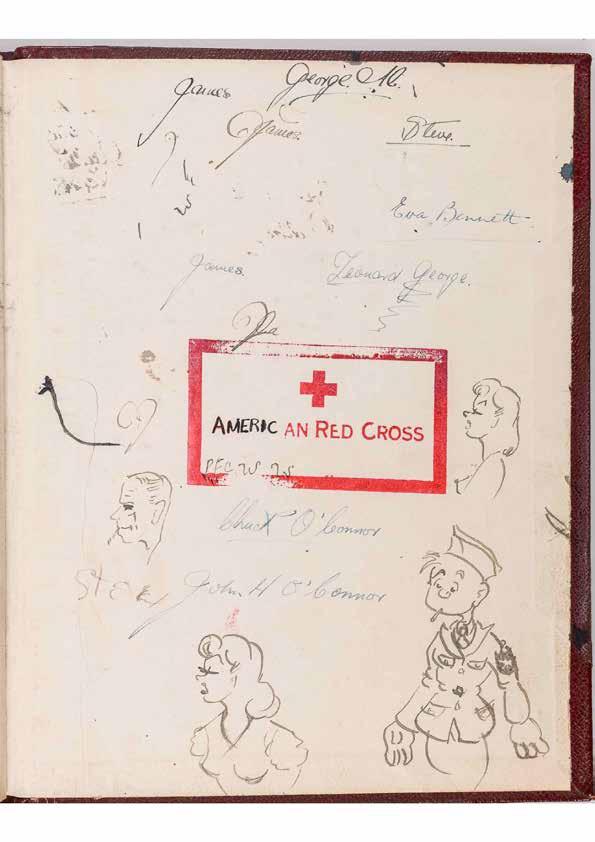 George. M.
James
James.
Steve.
Eva Bennett
James
Leonard George.
AMERICAN RED CROSS
PFC
Chuck O'Connor
John H O'Connor